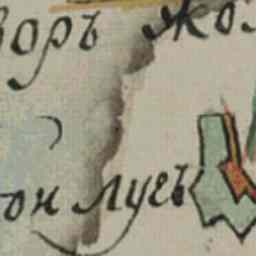 воръ жо
он лугъ